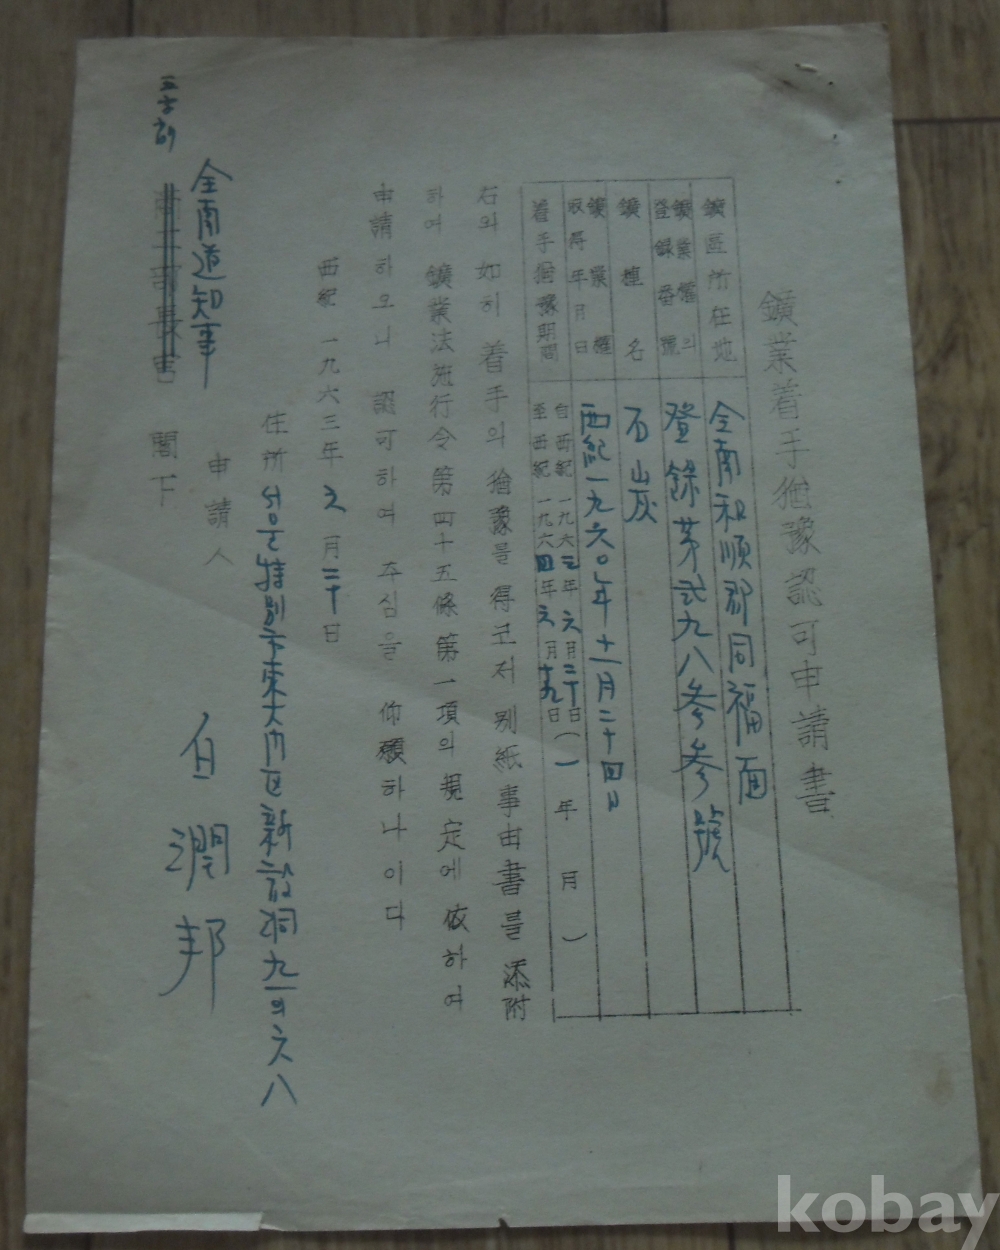 鑛業着手猶豫認可申請書
鑛區所在地 全南和順郡同福面
鑛業權의登錄番號 登錄第弐九八參參號
鑛種名 石炭
鑛業權取得年月日 西紀一九六〇年十一月二十四日
着手猶豫期間 自西紀一九六三年六月二十日 至西紀一九六四年六月十九日 (一年 月)
右와如히 着手의猶豫를得코저別紙事由書를添附
하여 鑛業法施行令第四十五條第一項의規定에依하여
申請하오니 認可하여 주심을 仰願하나이다
西紀 一九六三年 六月二十日
住所 서울特別市東大門区新設洞九一의六八
申請人 白潤邦
全南道知事
閣下
kobay